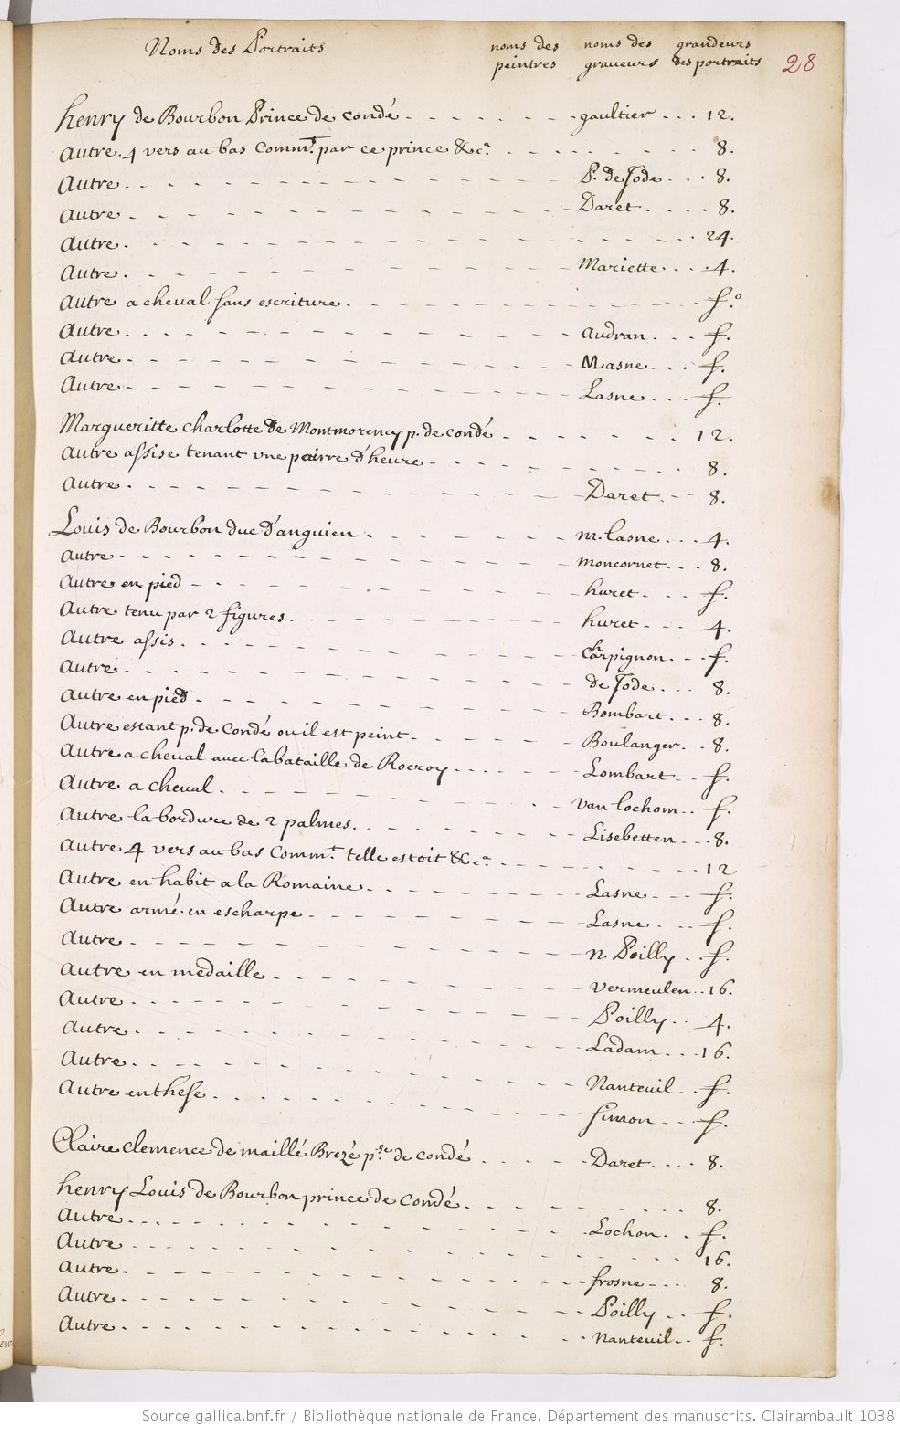 Noms des Portraits noms des peintres noms des graveurs grandeurs des portraits 28
henry de Bourbon Prince de condé gaultier 12.
Autre. 4 vers au bas Comm.t par ce prince &c.a 8.
Autre P. de Jode 8.
Autre Daret 8.
Autre 24.
Autre Mariette 4.
Autre a cheval sans escriture f.o
Autre Audran f.
Autre Masne f.
Autre Lasne f.
Margueritte charlotte de Montmorency p. de condé 12.
Autre assise tenant une pairre d'heure 8.
Autre Daret 8.
Louis de Bourbon duc d'anguien m. lasne 4.
Autre moncornet 8.
Autre en pied huret f.
Autre tenu par 2 figures huret 4.
Autre assis Charpignon f.
Autre de Jode 8.
Autre en pied Bombart 8.
Autre estant p. de Condé ou il est peint Boulanger 8.
Autre a cheval avec la bataille de Rocroy Lombart f.
Autre a cheval van lochom f.
Autre la bordure de 2 palmes Lisebetten 8.
Autre 4 vers au bas Comm.t telle estoit &c.a 12
Autre en habit a la Romaine Lasne f.
Autre armé en escharpe Lasne f.
Autre n. Poilly f.
Autre en medaille vermeulen 16.
Autre Poilly 4.
Autre Ladam 16.
Autre Nanteuil f.
Autre en these simon f.
Claire clemence de maillé Brezé p.sse de condé Daret 8.
henry Louis de Bourbon prince de condé 8.
Autre Lochon f.
Autre 16.
Autre frosne 8.
Autre Poilly f.
Autre nanteuil f.
Source gallica.bnf.fr / Bibliothèque nationale de France. Département des manuscrits. Clairambault 1038